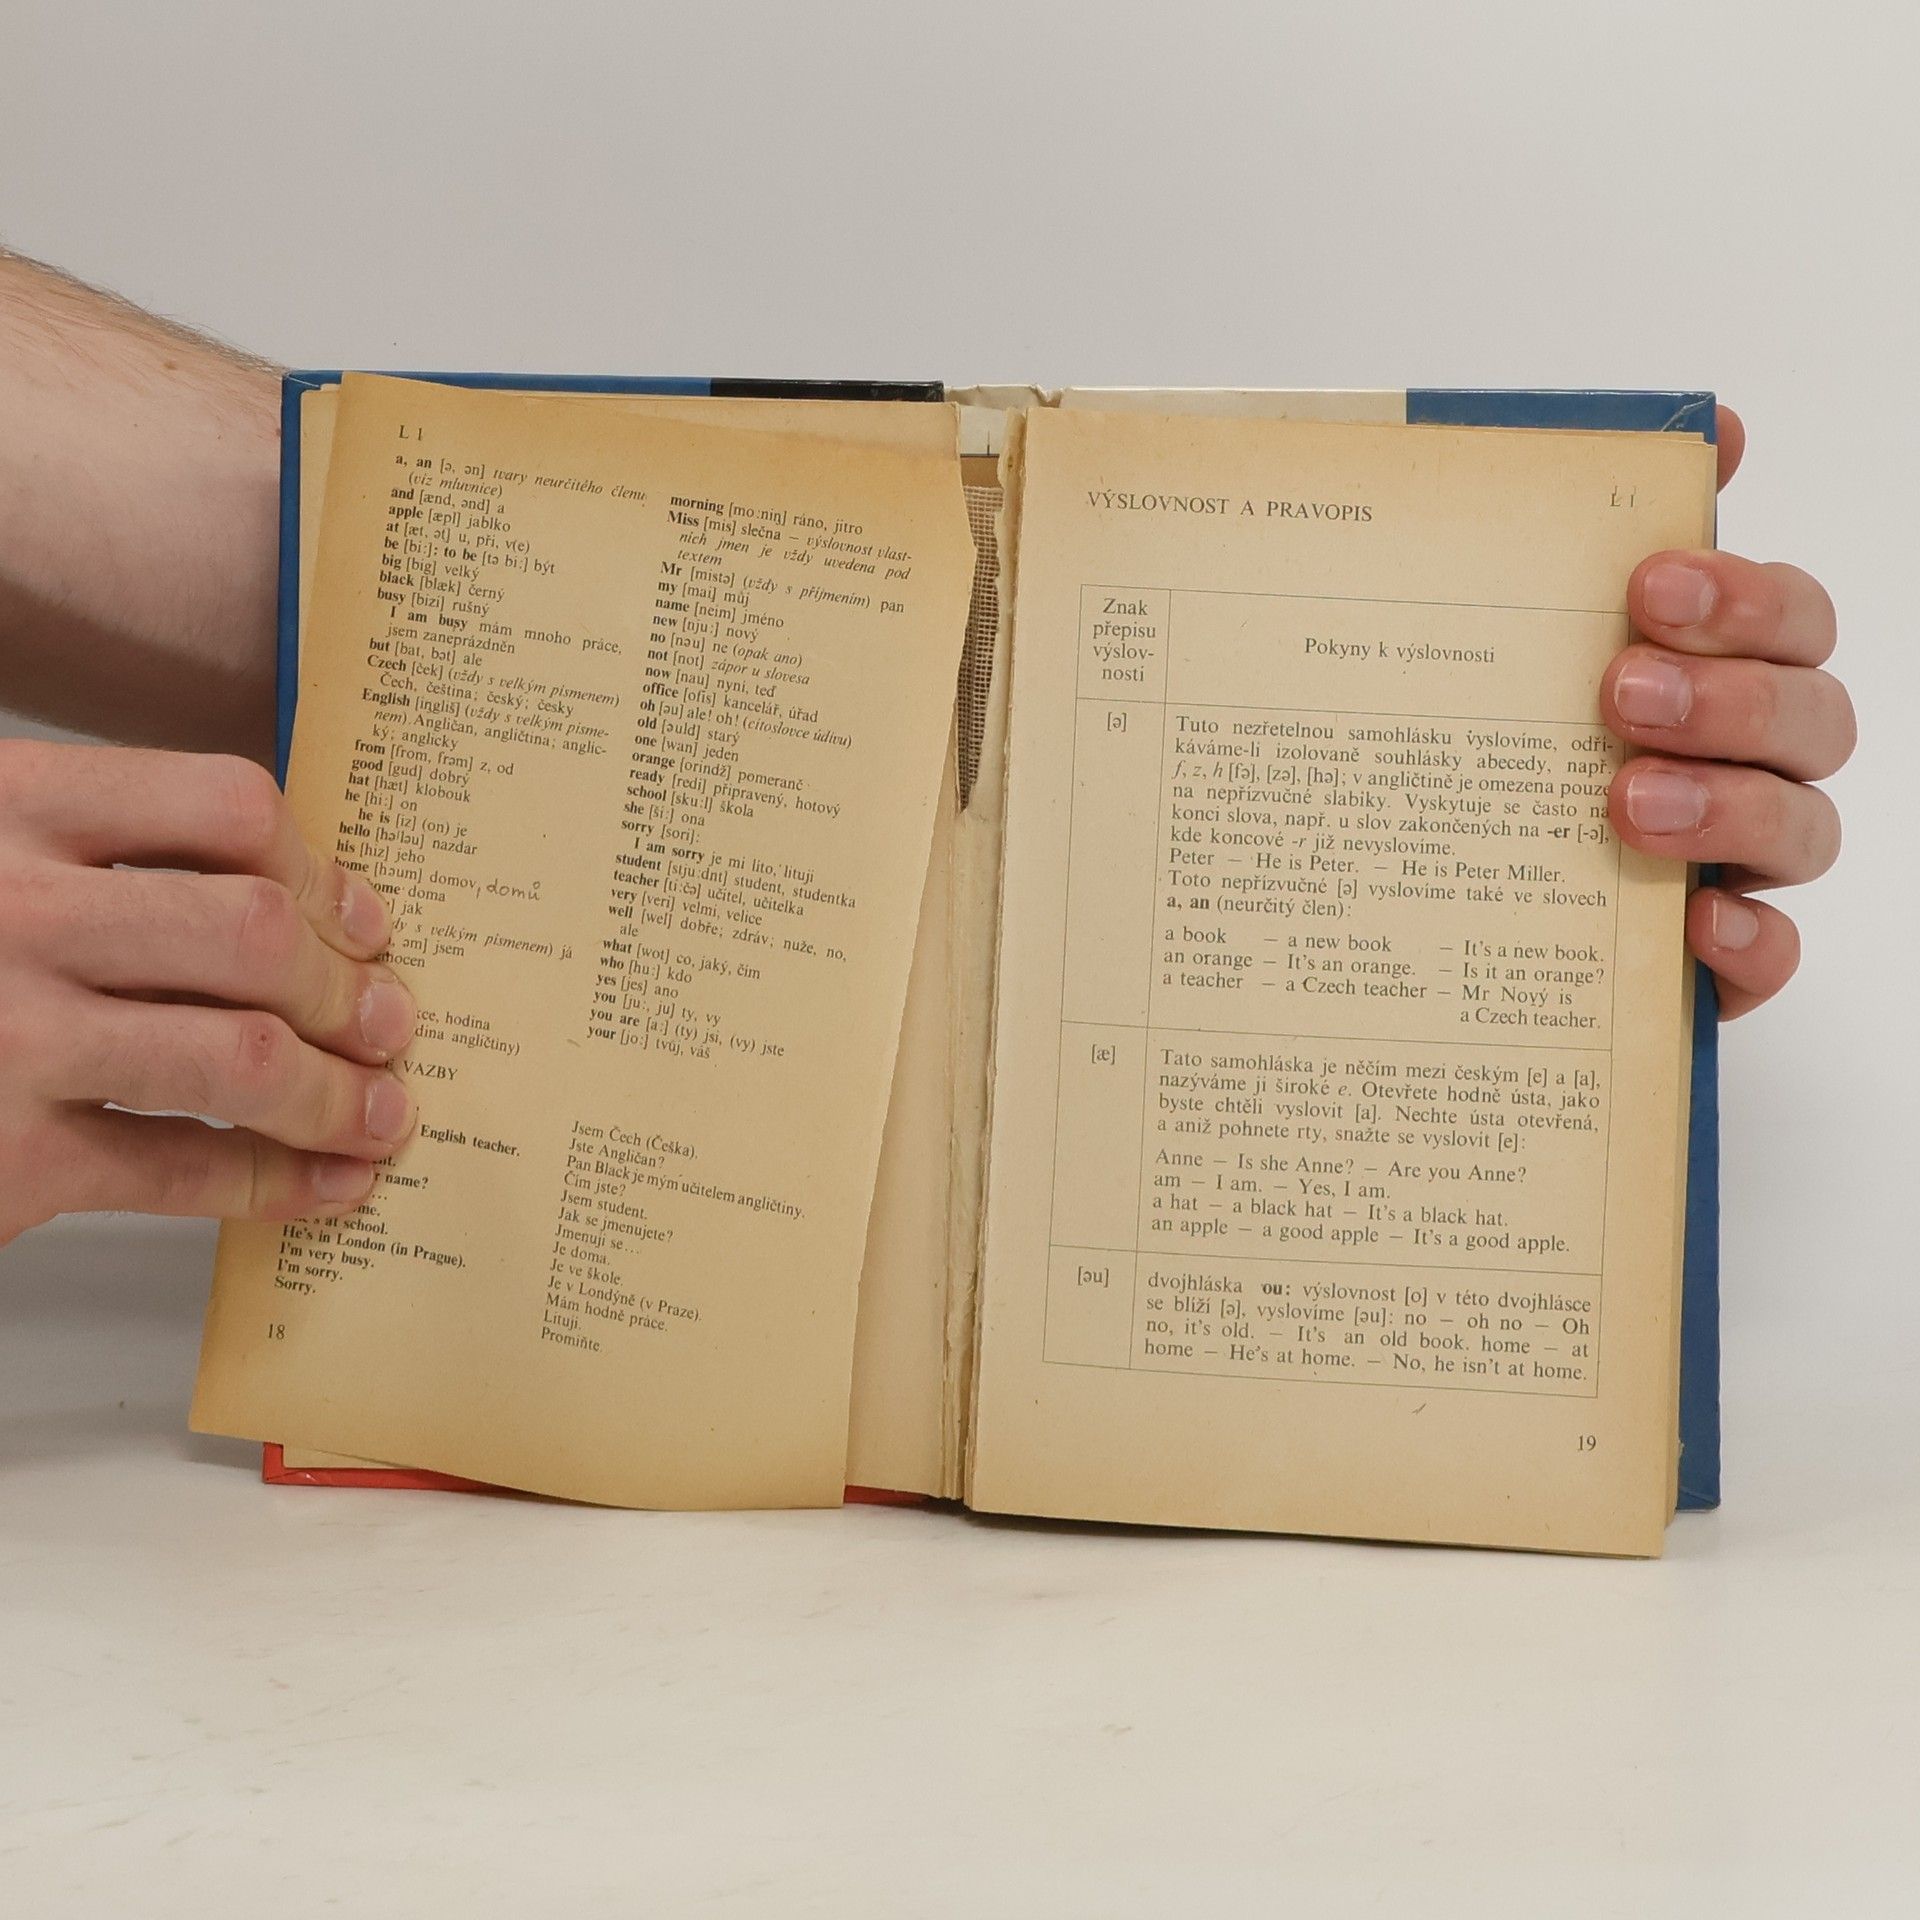 L 1
a, an [ə, ən] tvary neurčitého členu
(viz mluvnice)
and [ænd, ənd] a
apple [æpl] jablko
at [æt, ət] u, při, v(e)
be [bi:]; to be [tə bi:] být
big [big] velký
black [blæk] černý
busy [bizi] rušný
I am busy mám mnoho práce,
jsem zaneprázdněn
but [bat, bət] ale
Czech [ček] (vždy s velkým písmenem)
Čech, čeština; český; česky
English [iŋgliš] (vždy s velkým písme-
nem). Angličan, angličtina; anglic-
ký; anglicky
from [from, frəm] z, od
good [gud] dobrý
hat [hæt] klobouk
he [hi:] on
he is [iz] (on) je
hello [həˈləu] nazdar
his [hiz] jeho
home [həum] domov, domů
home doma
jak
s velkým písmenem) já
əm] jsem
hodina
angličtiny)
VAZBY
morning [mo:niŋ] ráno, jitro
Miss [mis] slečna – výslovnost vlast-
ních jmen je vždy uvedena pod
textem
Mr [mistə] (vždy s příjmením) pan
my [mai] můj
name [neim] jméno
new [nju:] nový
no [nəu] ne (opak ano)
not [not] zápor u slovesa
now [nau] nyní, teď
office [ofis] kancelář, úřad
oh [əu] ale! oh! (citoslovce údivu)
old [əuld] starý
one [wan] jeden
orange [orindž] pomeranč
ready [redi] připravený, hotový
school [sku:l] škola
she [ši:] ona
sorry [sori]:
I am sorry je mi líto, lituji
student [stju:dnt] student, studentka
teacher [ti:čə] učitel, učitelka
very [veri] velmi, velice
well [wel] dobře; zdráv; nuže, no,
ale
what [wot] co, jaký, čím
who [hu:] kdo
yes [jes] ano
you [ju:, ju] ty, vy
you are [a:] (ty) jsi, (vy) jste
your [jo:] tvůj, váš
English teacher.
name?
...
at school.
He's in London (in Prague).
I'm very busy.
I'm sorry.
Sorry.
Jsem Čech (Češka).
Jste Angličan?
Pan Black je mým učitelem angličtiny.
Čím jste?
Jsem student.
Jak se jmenujete?
Jmenuji se...
Je doma.
Je ve škole.
Je v Londýně (v Praze).
Mám hodně práce.
Lituji.
Promiňte.
18
L 1
VÝSLOVNOST A PRAVOPIS
Znak
přepisu
výslov-
nosti
Pokyny k výslovnosti
[ə]
Tuto nezřetelnou samohlásku vyslovíme, odří-
káváme-li izolovaně souhlásky abecedy, např.
f, z, h [fə], [zə], [hə]; v angličtině je omezena pouze
na nepřízvučné slabiky. Vyskytuje se často na
konci slova, např. u slov zakončených na -er [-ə],
kde koncové -r již nevyslovíme.
Peter – He is Peter. – He is Peter Miller.
Toto nepřízvučné [ə] vyslovíme také ve slovech
a, an (neurčitý člen):
a book – a new book – It's a new book.
an orange – It's an orange. – Is it an orange?
a teacher – a Czech teacher – Mr Nový is
a Czech teacher.
[æ]
Tato samohláska je něčím mezi českým [e] a [a],
nazýváme ji široké e. Otevřete hodně ústa, jako
byste chtěli vyslovit [a]. Nechte ústa otevřená,
a aniž pohnete rty, snažte se vyslovit [e]:
Anne – Is she Anne? – Are you Anne?
am – I am. – Yes, I am.
a hat – a black hat – It's a black hat.
an apple – a good apple – It's a good apple.
[əu]
dvojhláska ou: výslovnost [o] v této dvojhlásce
se blíží [ə], vyslovíme [əu]: no – oh no – Oh
no, it's old. – It's an old book. home – at
home – He's at home. – No, he isn't at home.
19